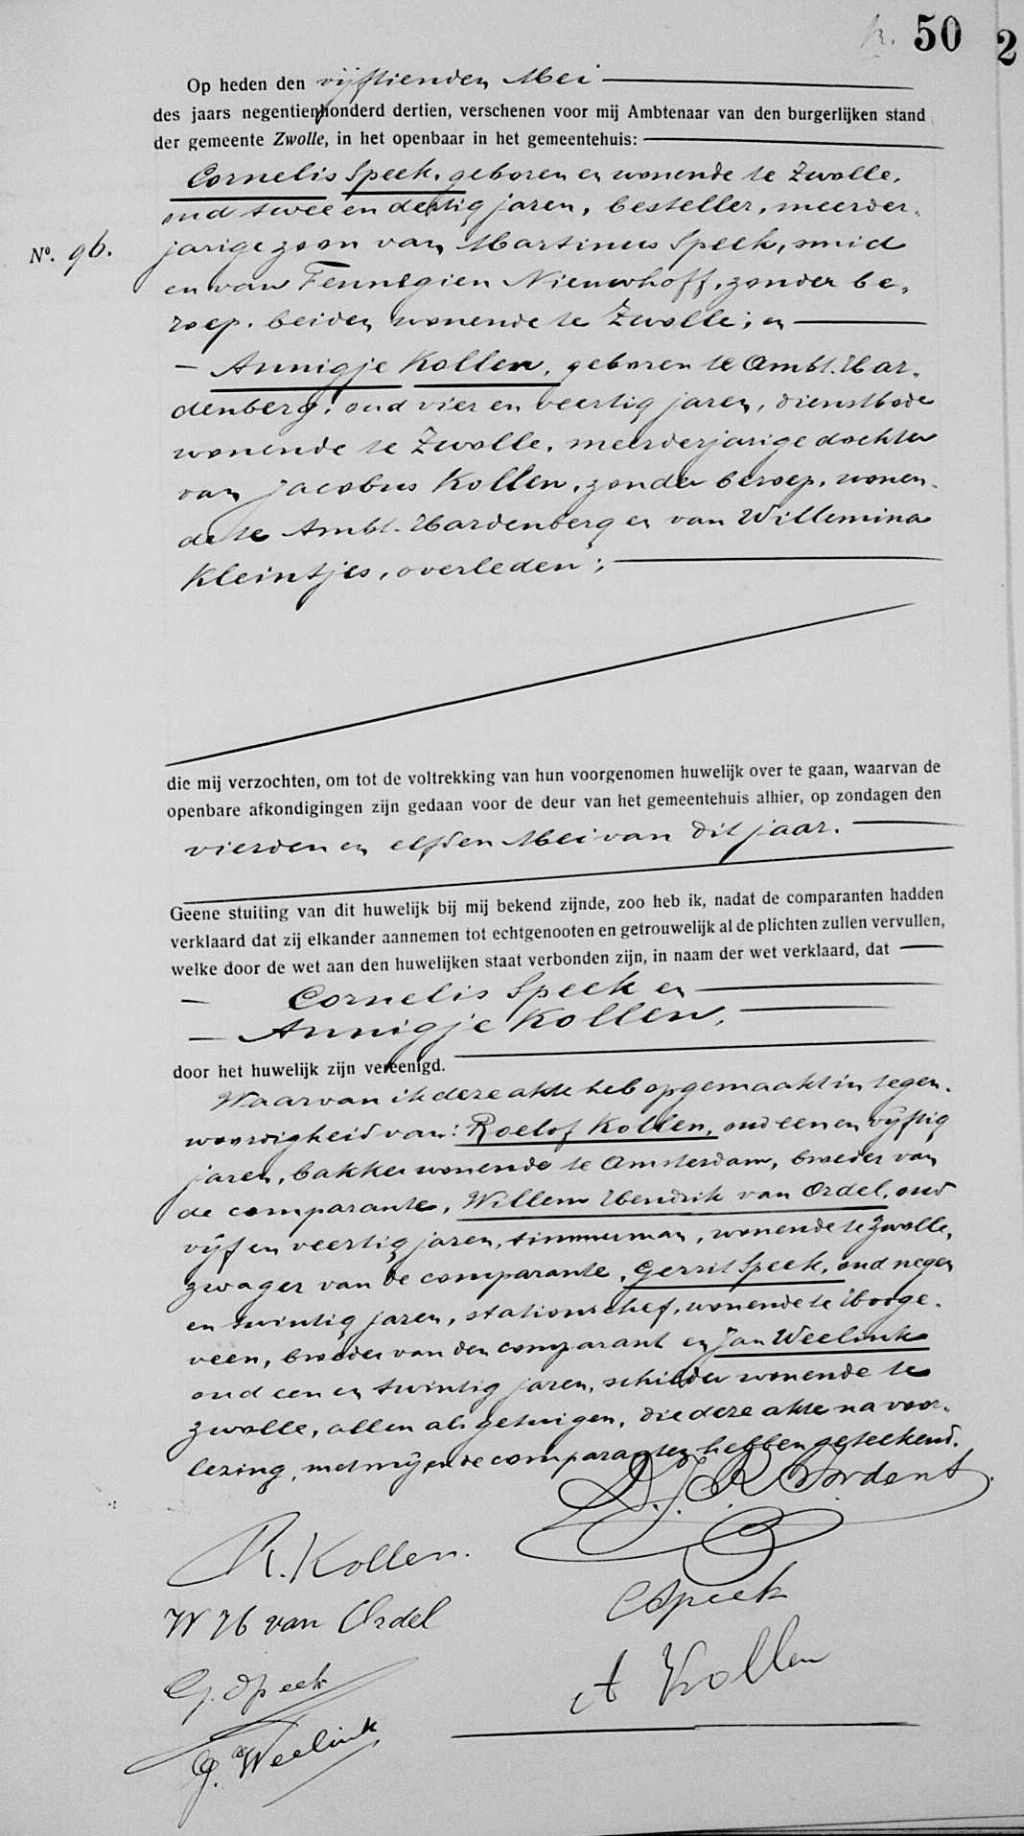 50
2
Op heden den vijftienden Mei
des jaars negentienhonderd dertien, verschenen voor mij Ambtenaar van den burgerlijken stand
der gemeente Zwolle, in het openbaar in het gemeentehuis:
Cornelis Speek, geboren en wonende te Zwolle,
oud twee en dertig jaren, besteller, meerder-
No. 96. jarige zoon van Martinus Speek, smid
en van Fennegien Nieuwhoff, zonder be-
roep, beiden wonende te Zwolle; en
- Annigje Kollen, geboren te Ambt-Har-
denberg, oud vier en veertig jaren, dienstbode
wonende te Zwolle, meerderjarige dochter
van Jacobus Kollen, zonder beroep, wonen-
de te Ambt-Hardenberg en van Willemina
Kleintjes, overleden;
die mij verzochten, om tot de voltrekking van hun voorgenomen huwelijk over te gaan, waarvan de
openbare afkondigingen zijn gedaan voor de deur van het gemeentehuis alhier, op zondagen den
vierden en elfden Mei van dit jaar.
Geene stuiting van dit huwelijk bij mij bekend zijnde, zoo heb ik, nadat de comparanten hadden
verklaard dat zij elkander aannemen tot echtgenooten en getrouwelijk al de plichten zullen vervullen,
welke door de wet aan den huwelijken staat verbonden zijn, in naam der wet verklaard, dat
- Cornelis Speek en
- Annigje Kollen,
door het huwelijk zijn vereenigd.
Waarvan ik deze akte heb opgemaakt in tegen-
woordigheid van: Roelof Kollen, oud een en vijftig
jaren, bakker wonende te Amsterdam, broeder van
de comparante, Willem Hendrik van Ordel, oud
vijf en veertig jaren, timmerman, wonende te Zwolle,
zwager van de comparante, Gerrit Speek, oud negen
en twintig jaren, stationschef, wonende te Hooge-
veen, broeder van den comparant en Jan Weelink
oud een en twintig jaren, schilder wonende te
Zwolle, allen als getuigen, die deze akte na voor-
lezing, met mij en de comparanten hebben geteekend.
R. Kollen.
W H van Ordel
C Speek
G. Speek
A Kollen
J. Weelink